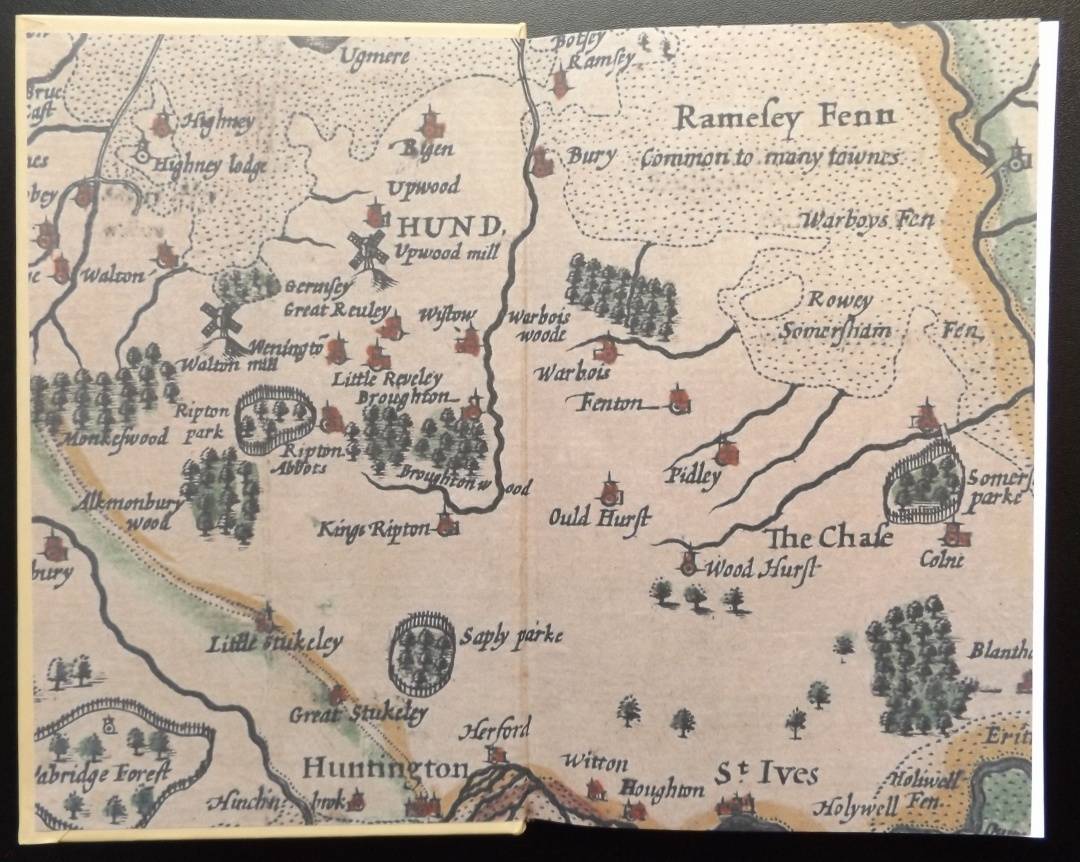 Ugmere
Botsey
Ramſey
Highney
Highney lodge
Bigen
Bury
Rameſey Fenn
Common to many townes
Upwood
HUND.
Upwood mill
Warboys Fen
Walton
Gernſey
Great Reuley
Wiſtow
Warbois
woode
Rowey
Somerſham
Fen
Wenington
Walton mill
Little Reveley
Warbois
Broughton
Fenton
Ripton
park
Monkeſwood
Ripton
Abbots
Broughton wood
Pidley
Somerſ
parke
Alkmonbury
wood
Kings Ripton
Ould Hurſt
The Chaſe
Colne
bury
Wood Hurſt
Little Stukeley
Saply parke
Blanth
Great Stukeley
Herford
Erit
Huntington
Witton
St Ives
abridge Foreſt
Hinchinbrok
Houghton
Holywell
Holiwell
Fen